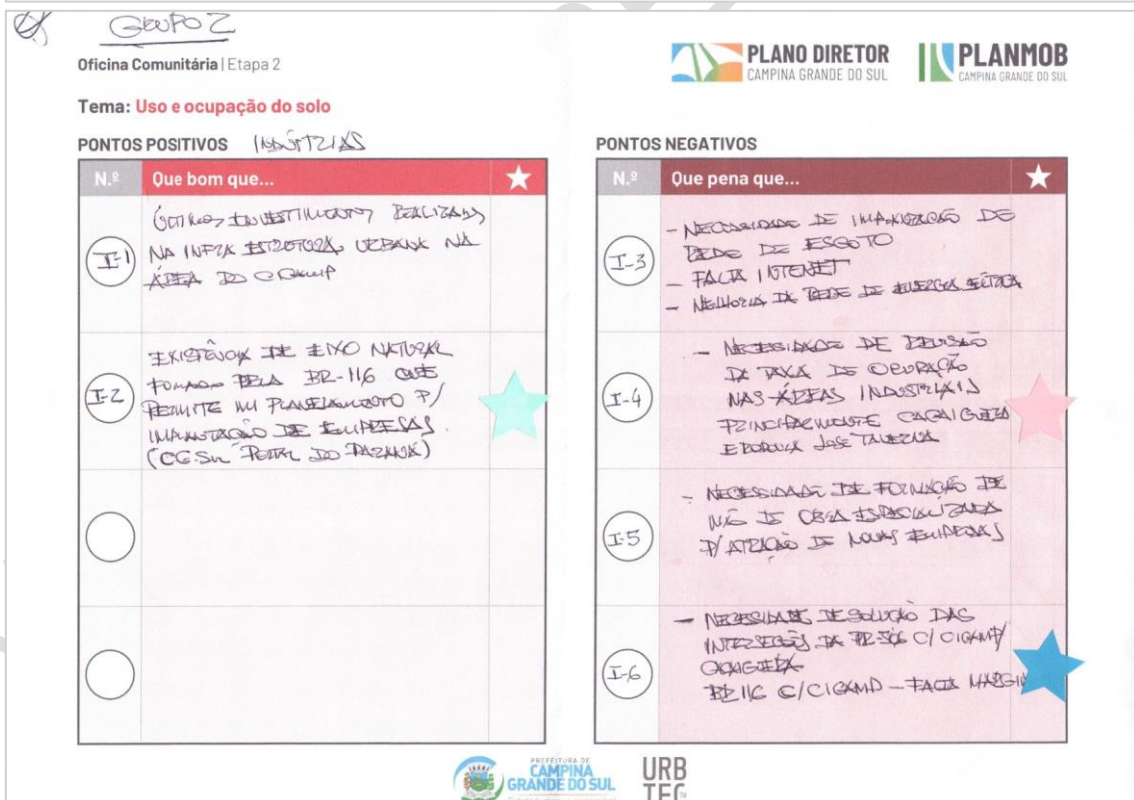 GRUPO 2
Oficina Comunitária | Etapa 2
PLANO DIRETOR
CAMPINA GRANDE DO SUL
PLANMOB
CAMPINA GRANDE DO SUL
Tema: Uso e ocupação do solo
PONTOS POSITIVOS INDÚSTRIAS
N.º Que bom que...
I-1
ÚLTIMOS INVESTIMENTOS REALIZADOS
NA INFRA ESTRUTURA URBANA NA
ÁREA DO
I-2
EXISTÊNCIA DE EIXO NATURAL
FORMADO PELA BR-116 QUE
PERMITE UM PLANEJAMENTO P/
IMPLANTAÇÃO DE EMPRESAS
(CG.SUL PORTAL DO PARANÁ)
PONTOS NEGATIVOS
N.º Que pena que...
I-3
- NECESSIDADE DE IMPLANTAÇÃO DE
REDE DE ESGOTO
- FALTA INTENET
- MELHORIA DA REDE DE ENERGIA ELÉTRICA
I-4
- NECESSIDADE DE REVISÃO
DA TAXA DE OCUPAÇÃO
NAS ÁREAS INDUSTRIAIS
PRINCIPALMENTE
E JOSÉ TAVERNA
I-5
- NECESSIDADE DE FORMAÇÃO DE
MÃO DE OBRA ESPECIALIZADA
P/ ATRAÇÃO DE NOVAS EMPRESAS
I-6
- NECESSIDADE DE SOLUÇÃO DAS
INTERSEÇÕES DA PR-506 C/ CIGAMP/
BR 116 C/CIGAMP - FALTA
PREFEITURA DE
CAMPINA
GRANDE DO SUL
URB
TEC